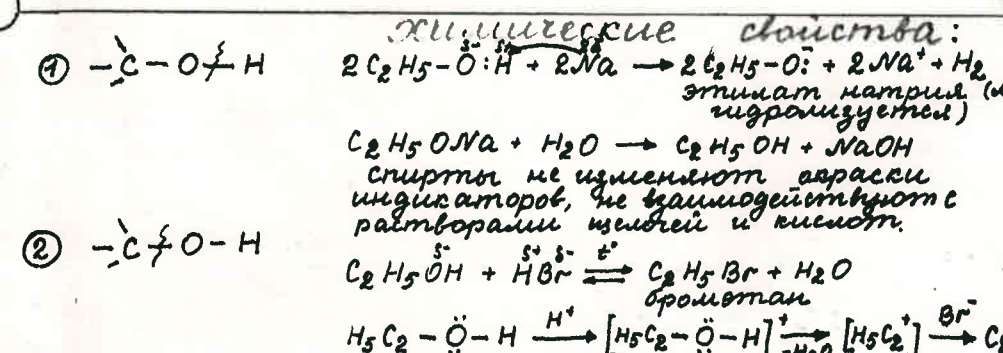 химические свойства:
① –C–O–H 2C₂H₅–Ö:H + 2Na → 2C₂H₅–O:⁻ + 2Na⁺ + H₂
этилат натрия (
гидролизуется)
C₂H₅ONa + H₂O → C₂H₅OH + NaOH
спирты не изменяют окраски
индикаторов, не взаимодействуют с
растворами щелочей и кислот.
② –C–O–H
δ- δ+ δ- t°
C₂H₅OH + HBr ⇌ C₂H₅Br + H₂O
бромэтан
H₅C₂–Ö–H —H⁺→ [H₅C₂–Ö–H]⁺ —-H₂O→ [H₅C₂⁺] —Br⁻→ C₂